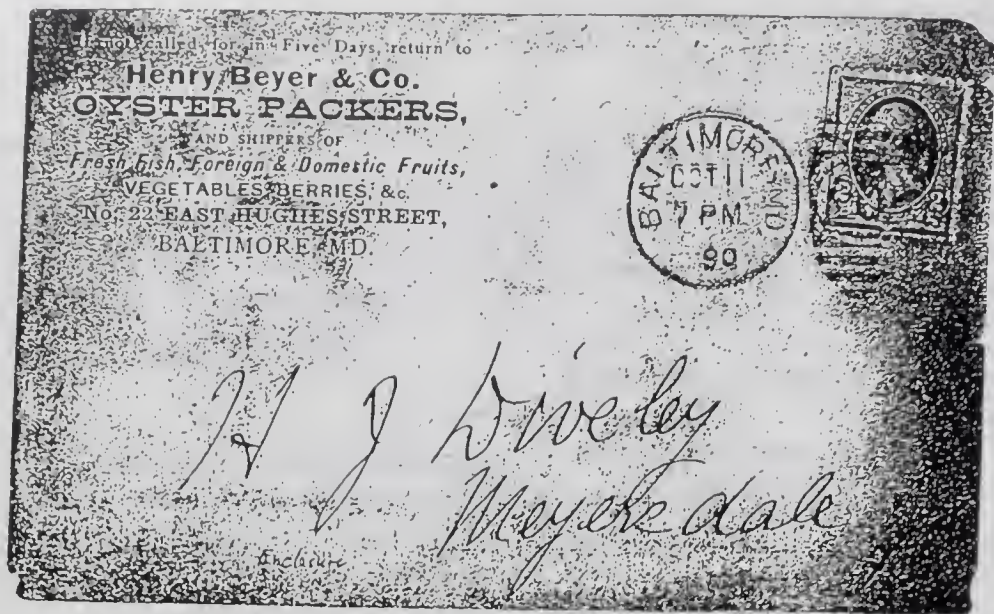 If not called for in Five Days, return to
Henry Beyer & Co.
OYSTER PACKERS,
AND SHIPPERS OF
Fresh Fish, Foreign & Domestic Fruits,
VEGETABLES, BERRIES, &c.
No. 22 EAST HUGHES STREET,
BALTIMORE, MD.
BALTIMORE, MD.
OCT 11
7 PM
90
H J Diveley
Meyersdale
Enclosure